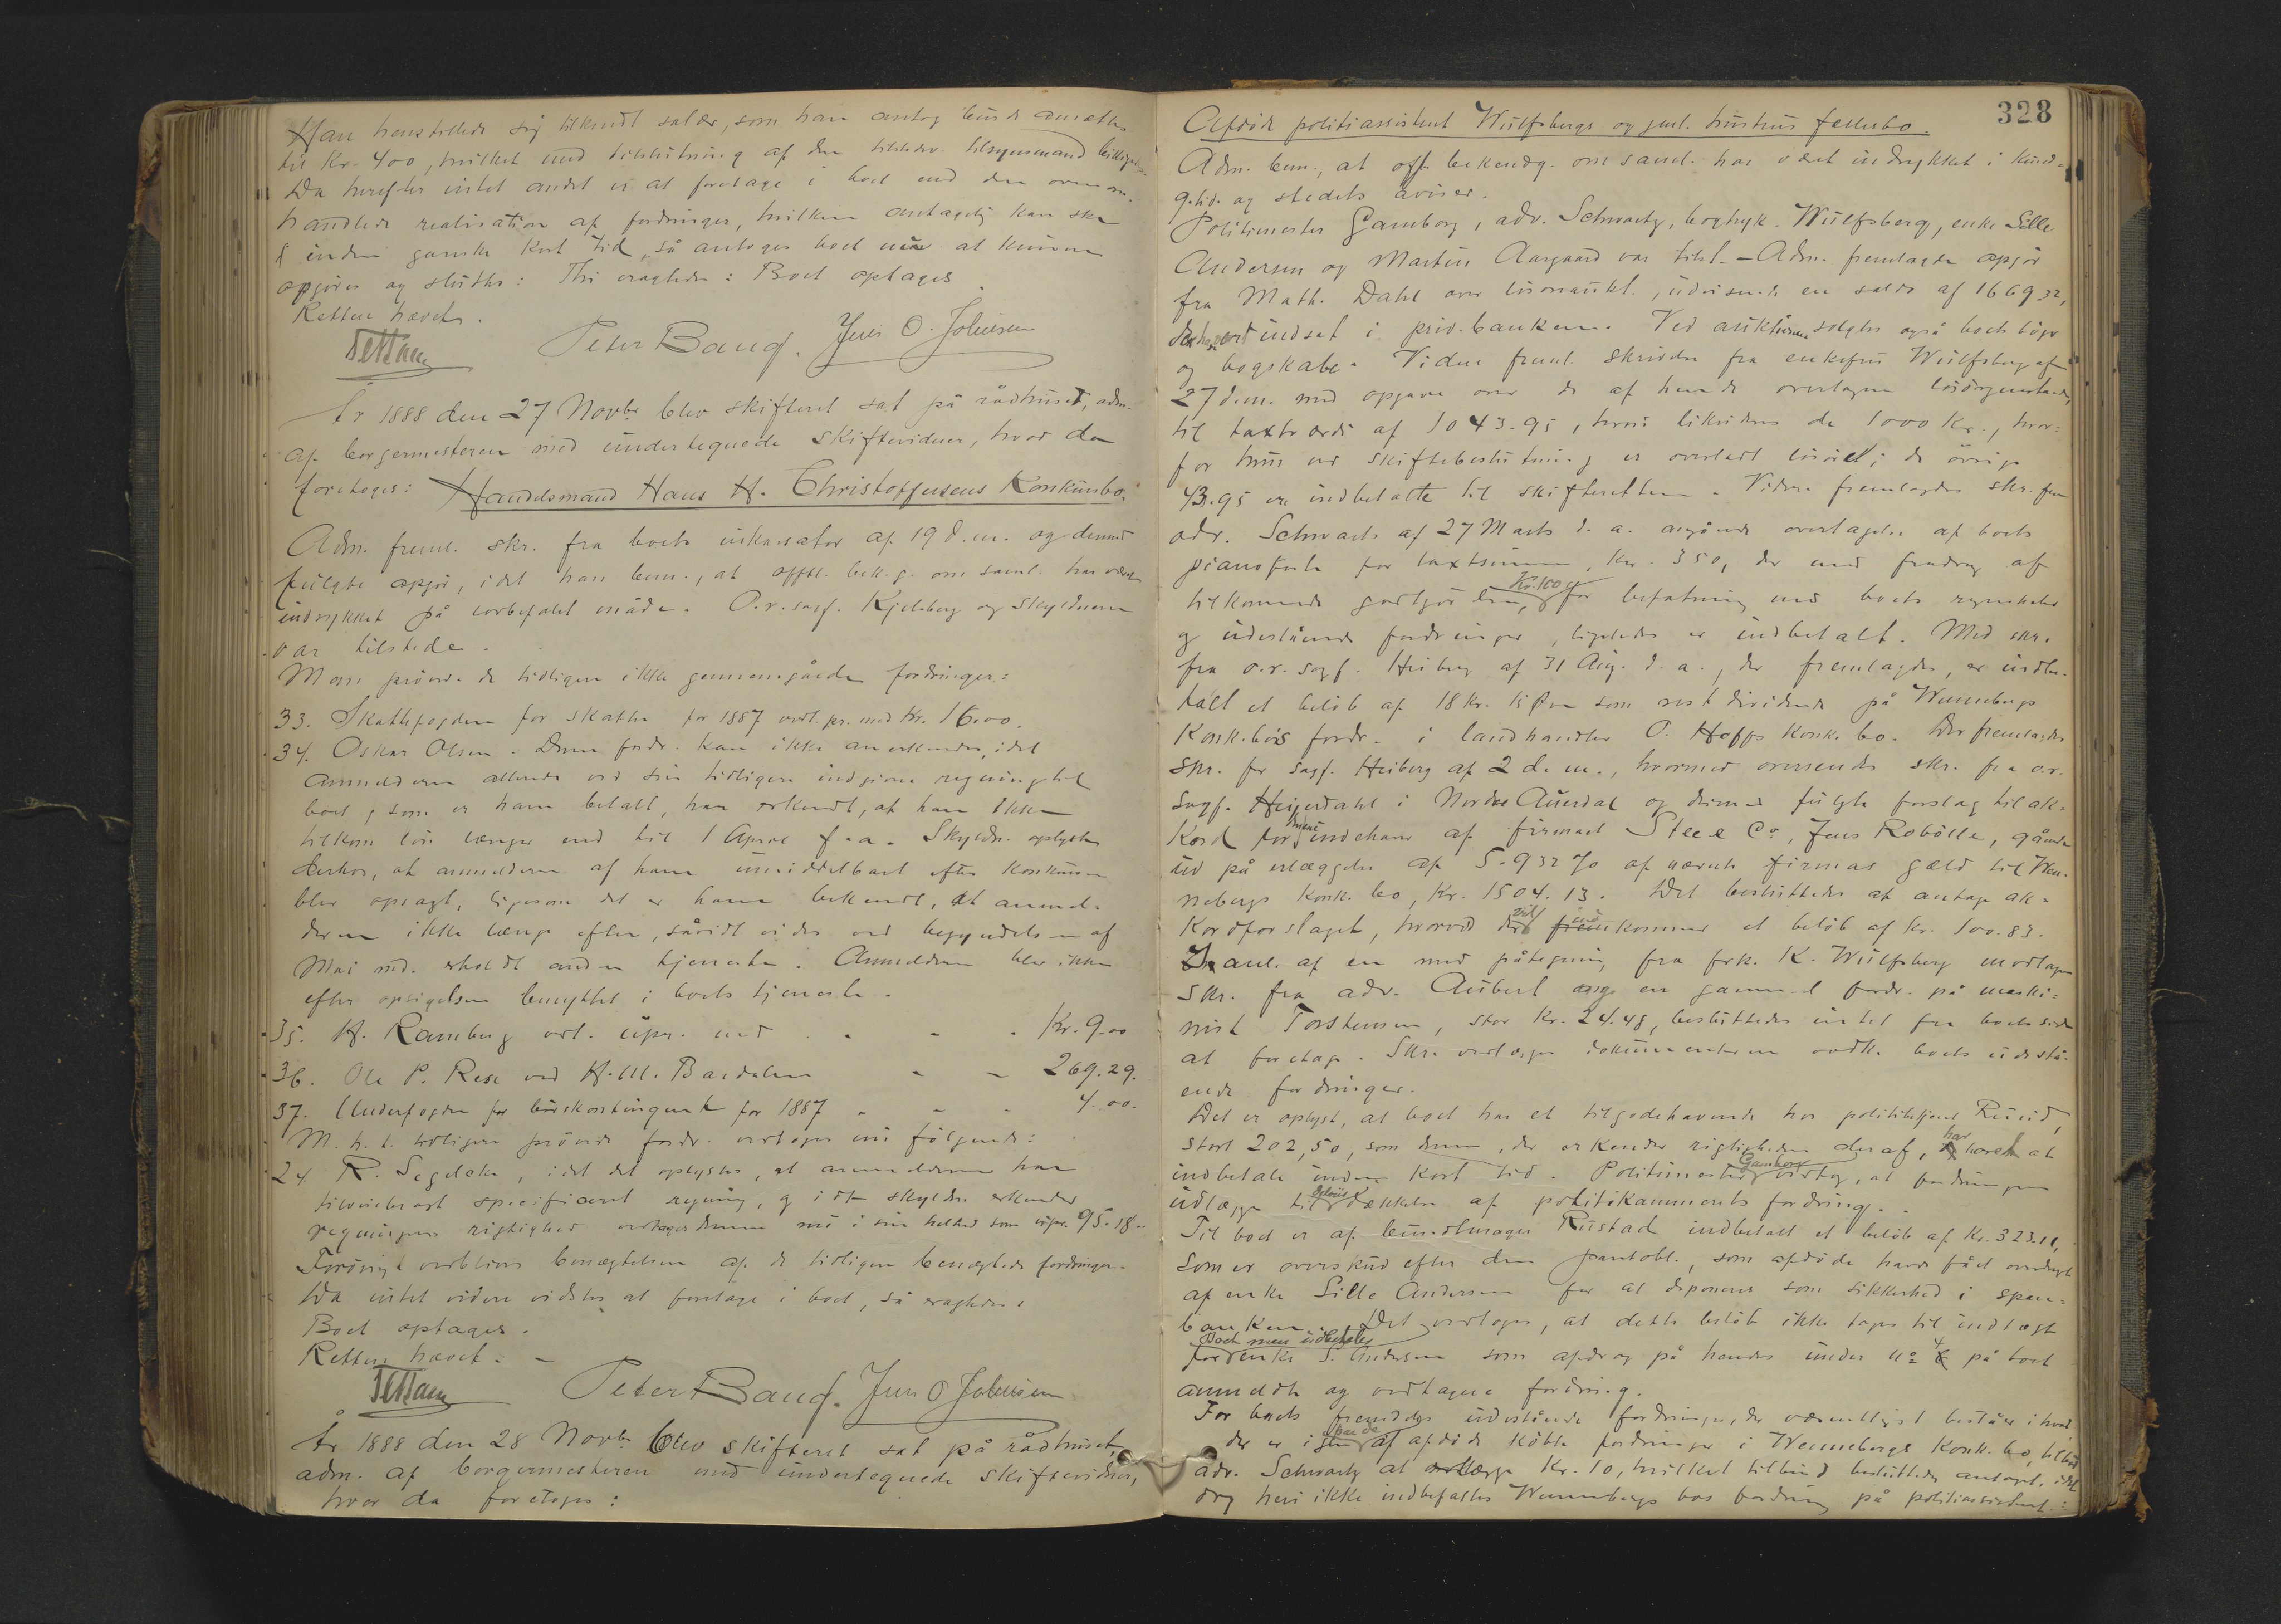 Han henstillede sig tilkendt salær, som han antog burde ansættes
til Kr. 400, hvilket med tilslutning af den tilstedev. tilsynsmand bevilgedes.
Da herefter intet andet er at foretage i boet end den ovenom-
handlede realisation af fordringer, hvilken antagelig kan ske
inden ganske kort tid, så antoges boet nu at kunne
opgjøres og sluttes: Thi eragtedes: Boet optages.
Retten hævet.
Peter Bang. Jens O. Johnsen
År 1888 den 27 Novbr blev skifteret sat på rådhuset, adm.
af borgermesteren med undertegnede skiftevidner, hvor da
foretoges: Handelsmand Hans H. Christoffersens Konkursbo.
Adm. freml. skr. fra boets inkassator af 19 d.m. og dermed
fulgte opgjør, idet han bem., at offtl. bek.g. om saml. har været
indrykket på lovbefalet måde. O.r.sagf. Kjelsberg og skyldneren
var tilstede.
Man prövede de tidligere ikke gennemgåede fordringer:
33. Skattefogden for skatter for 1887 vedt. pr. med Kr. 16.00.
34. Oskar Olsen. Denne fordr. kan ikke anerkendes, idet
anmelderen allerede ved sin tidligere indgivne regning til
boet, som er ham betalt, har erkendt, at han ikke
tilkom lön længer end til 1 April f.a. Skyldn. oplyste
derhos, at anmelderen af ham umiddelbart efter konkursen
blev opsagt, ligesom det er ham bekendt, at anmel-
deren ikke længe efter, såvidt vides ved begyndelsen af
Mai md. erholdt anden tjeneste. Anmelderen blev ikke
efter opsigelsen benyttet i boets tjeneste.
35. H. Ramberg vdt. upr. med - - - Kr. 9.00
36. Ole P. Rese ved H. M. Bardalen - - 269.29.
37. Underfogden for bürskontingent for 1887 - - - 4.00.
M.h.t. tidligere prövede fordr. vedtoges nu fölgende:
24 R. Segelcke, idet det oplystes, at anmelderen har
tilveiebragt specificeret regning, og idet skyldn. erkender
regningens rigtighed vedtages denne nu i sin helhed som upr. 95.18.
Forövrigt vedblives benægtelsen af de tidligere benægtede fordringer.
Da intet videre vidstes at foretage i boet, så eragtedes:
Boet optages.
Retten hævet. -
Peter Bang. Jens O Johnsen
År 1888 den 28 Novbr blev skifteret sat på rådhuset,
adm. af borgermesteren med undertegnede skiftevidner,
hvor da foretoges:
328
Afdöde politiassistent Wulfsbergs og gjenl. hustrus fællesbo.
Adm. bem., at off. bekendtg. om saml. har været indrykket i kund-
g.tid. og stedets aviser.
Politimester Gamborg, adv. Schwartz, bogtryk. Wulfsberg, enke Sille
Andersen og Martin Aargaard var tilst. - Adm. fremlagde opgjör
fra Math. Dahl over lösöreaukt., udvisende en saldo af 1669.32,
der har vært indsat i priv.banken. Ved auktionen solgtes også boets böger
og bogskabe. Videre freml. skrivelse fra enkefru Wulfsberg af
27 d.m. med opgave over de af hende overtagne lösöregenstande,
til taxtværdi af 1043.95, hvori likvideres de 1000 Kr., hvor-
for hun ved skiftebeslutning er overladt lösöre; de övrige
43.95 er indbetalte til skifteretten. Videre fremlagdes skr. fra
adv. Schwartz af 27 Marts d.a. angående overtagelse af boets
pianoforte for taxtsummen, Kr. 350, der med fradrag af
tilkommende godtgjörelse, Kr. 100 for befatning med boets regnskaber
og udestående fordringer, ligeledes er indbetalt. Med skr.
fra o.r.sagf. Heiberg af 31 Aug. d.a., der fremlagdes, er indbe-
talt et belöb af 18 Kr. 15 Öre som rest dividende på Wennebergs
Konk.bos fordr. i landhandler O. Hoffs Konk.bo. Der fremlagdes
skr. fra sagf. Heiberg af 2 d.m., hvormed oversendes skr. fra o.r.
sagf. Heyerdahl i Nordre Aurdal og dermed fulgte forslag til ak-
kord for indehaver af firmaet Steel Co, Jens Robölle, gående
ud på erlæggelse af 5.932 % af nævnte firmas gæld til Wen-
nebergs Konk.bo, Kr. 1504.13. Det besluttedes at antage ak-
kordforslaget, hvorved der vil indkomme et belöb af Kr. 100.83.
I anl. af en med påtegning fra frk. K. Wulfsberg modtagen
skr. fra adv. Aubert ang. en gammel fordr. på maski-
nist Torstensen, stor Kr. 24.48, besluttedes intet fra boets side
at foretage. Skr. vedlægges dokumenterne vedk. boets udestå-
ende fordringer.
Det er oplyst, at boet har et tilgodehavende hos politibetjent Ruud,
stort 202,50, som denne, der erkender rigtigheden deraf, har lovet at
indbetale inden kort tid. Politimester Gamborg vedtog, at fordringen
udlægges til delvis dækkelse af politikammerets fordring.
Til boet er af bundtmager Rustad indbetalt et belöb af Kr. 323.11,
som er overskud efter den pantobl., som afdöde havde fået overdraget
af enke Sille Andersen for at deponeres som sikkerhed i spare-
banken. Det vedtoges, at dette belöb ikke tages til indtægt
for boet men udbetales enke S. Andersen som afdrag på hendes under no 4 på boet
anmeldte og vedtagne fordring.
For boets fremdeles udestående fordringer, der væsentligst består i hvad
der er igen på de af afdöde köbte fordringer i Wennebergs Konk.bo, tilböd
adv. Schwartz at erlægge Kr. 10, hvilket tilbud besluttedes antaget, idet
dog heri ikke indbefattes Wennebergs bos fordring på politiassistent-